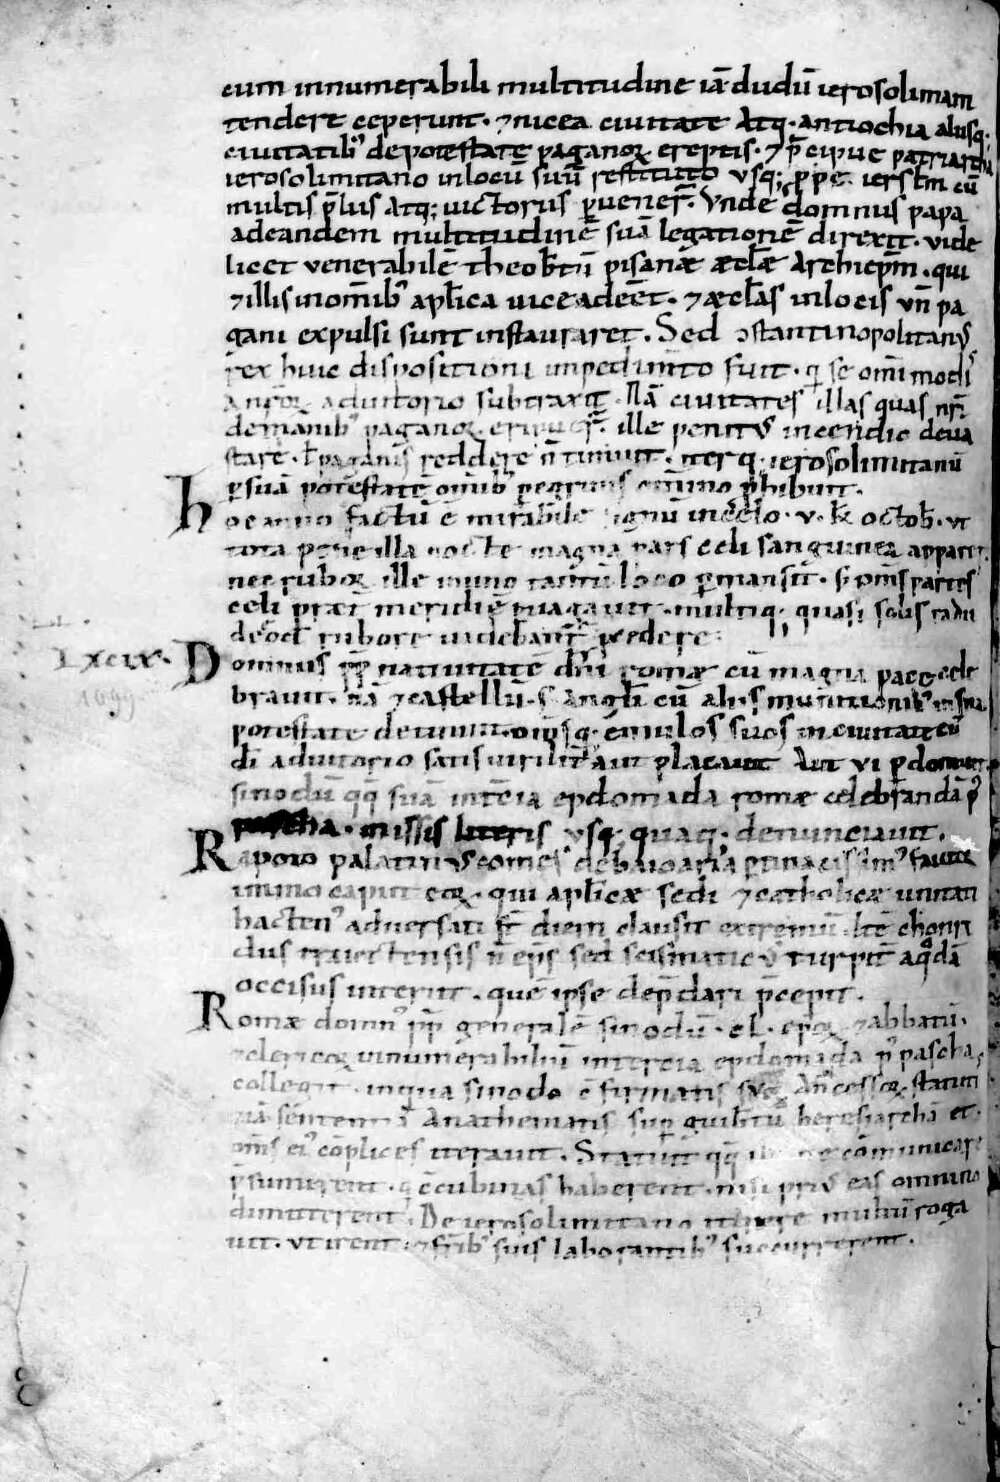 cum innumerabili multitudine iā dudū ierosolimam
tendere ceperunt · ⁊ nicea ciuitate Atq · antiochia aliisq ·
ciuitatib' de potestate paganoꝝ ereptis · ⁊ p̄cipue patriarcha
ierosolimitano in locū suū restituto usq; ꝓpe · ierslm cū
multis p̄liis Atq; uictoriis ꝑuener̄ · Unde domnus papa
ad eandem multitudinē suā legationē direxit · uide
licet venerabilē theob̄tū pisanæ æcl̄æ Archiep̄m · qui
⁊ illis in om̄ib' apl̄ica uice adeēt · ⁊ æcl̄as in locis vn̄ pa
gani expulsi sunt instauraret · Sed ɔstantinopolitanꝰ
rex huic dispositioni impedim̄to fuit · q̄ se om̄imodis
Anr̄oꝝ adiutorio subtraxit · Nā ciuitates illas quas nr̄i
de manib' paganoꝝ eripuer̄ · ille penitꝰ incendio deua
stare · ł paganis reddere n̄ timuit · iter q; ierosolimitanū
ꝑ suā potestatē om̄ib' ꝑegrinis om̄ino ꝓhibuit ·
hoc anno factū ē mirabile signū in cęlo · v · kł octob̄ · vt
tota pene illa nocte magna pars celi sanguinea appareret
nec rubor ille in uno tantū loco ꝑmansit · s; om̄s partes
celi præt̄ meridiē ꝑuagauit · multiq; quasi solis radii
de eod̄ rubore uideban̄t ꝓcedere ·
Lxcix · Domnus pp̄ natiuitatē dn̄i romæ cū magna pace cele
1099
brauit · nā ⁊ castellū · s · angl̄i cū aliis munitionib' in sua
potestate detinuit · om̄sq; emulos suos in ciuitate cū
dī adiutorio satis uirilit̄ aut placauit Aut vi ꝑdomuit
sinodū qq̄ suā in terćia epdomada romæ celebrandā p'
pascha · missis literis usq; quaq; denunciauit ·
Rapoto palatinꝰ comes de baioaria ꝑtinacissim' fautor
immo caput eoꝝ · qui apl̄icæ sedi ⁊ catholicæ unitati
hacten' aduersati st̄ diem clausit extremū · Itē chonra
dus traiectensis n̄ ep̄s sed scismaticꝰ turpit̄ a qđā
occisus interiit · quē ipse dep̄dari p̄cepit ·
Romæ domn' pp̄ generalē sinodū · cl · epoꝝ ⁊ abbatū ·
⁊ clericoꝝ innumerabiliū in tercia epdomada p' pascha
collegit · in qua sinodo ɔfirmatis suoꝝ An̄cessoꝝ statutis
⁊iā sententiā Anathematis suꝑ guib̄tū heresiarchā et ·
om̄s ei' cōplices iterauit · Statuit qq̄ cōmunicare
p̄sumerent · q̄ ɔcubinas haberent · nisi priꝰ eas omnino
dimitterent · De ierosolimitano itinere multū roga
uit · ut irent · ⁊ fr̄ib' suis laborantib' succurrerent ·